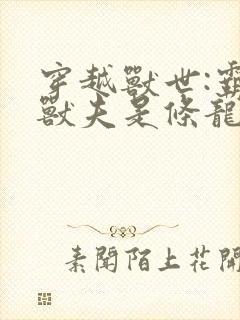 穿越獸世:靈
獸夫是條龍
素聞陌上花開